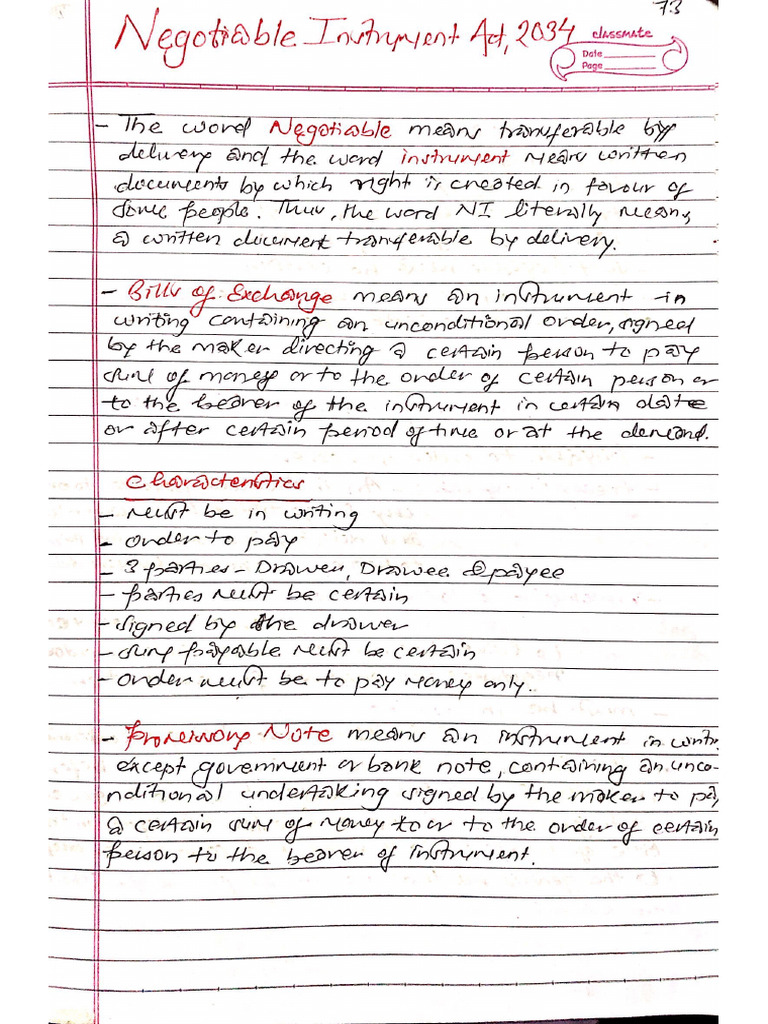 73
Negotiable Instrument Act, 2034
classmate
Date
Page
- The word Negotiable means transferable by
delivery and the word instrument means written
documents by which right is created in favour of
some people. Thus, the word NI literally means
a written document transferable by delivery.
- Bills of Exchange means an instrument in
writing containing an unconditional order, signed
by the maker directing a certain person to pay
sum of money or to the order of certain person or
to the bearer of the instrument in certain date
or after certain period of time or at the demand.
Characteristics
- Must be in writing
- order to pay
- 3 parties - Drawer, Drawee & payee
- parties must be certain
- signed by the drawer
- sum payable must be certain
- order must be to pay money only.
- Promissory Note means an instrument in writ
except government or bank note, containing an unco-
nditional undertaking signed by the maker to pay
a certain sum of money to or to the order of certain
person to the bearer of instrument.